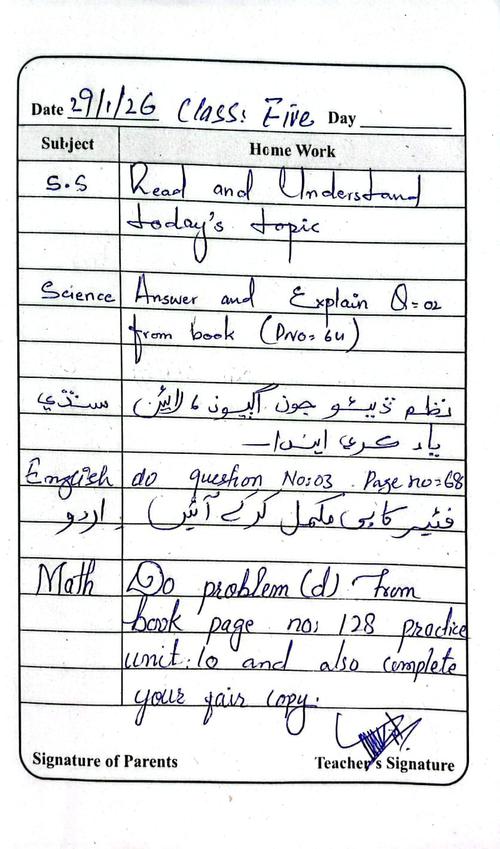 Date 29/1/26 Class: Five Day
Subject Home Work
S.S Read and Understand
today's topic
Science Answer and Explain Q=02
from book (PNO= 64)
سنڌي نظم ڏيئو جون اڳيون 6 لائين
ياد ڪري اينداـ
English do question No:03 Page no=68
اردو فئیر کاپی مکمل کرکے آئیں
Math Do problem (d) from
book page no: 128 practice
unit:10 and also complete
your fair copy.
Signature of Parents Teacher's Signature